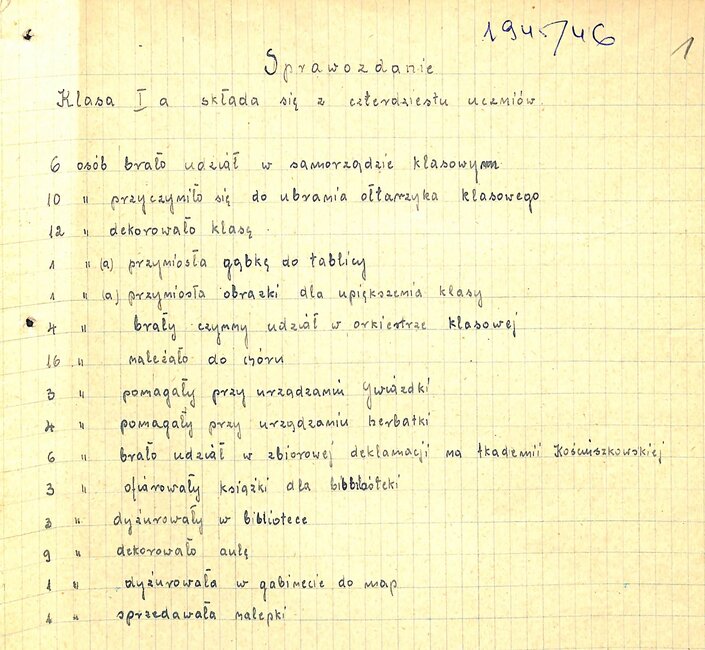 1945/46
1
Sprawozdanie
Klasa I a składa się z czterdziestu uczniów.
6 osób brało udział w samorządzie klasowym
10 " przyczyniło się do ubrania ołtarzyka klasowego
12 " dekorowało klasę
1 " (a) przyniosła gąbkę do tablicy
1 " (a) przyniosła obrazki dla upiększenia klasy
4 " brały czynny udział w orkiestrze klasowej
16 " należało do chóru
3 " pomagały przy urządzaniu Gwiazdki
4 " pomagały przy urządzaniu herbatki
6 " brało udział w zbiorowej deklamacji na Akademii Kościuszkowskiej
3 " ofiarowały książki dla biblioteki
3 " dyżurowały w bibliotece
9 " dekorowało aulę
1 " dyżurowała w gabinecie do map
1 " sprzedawała nalepki